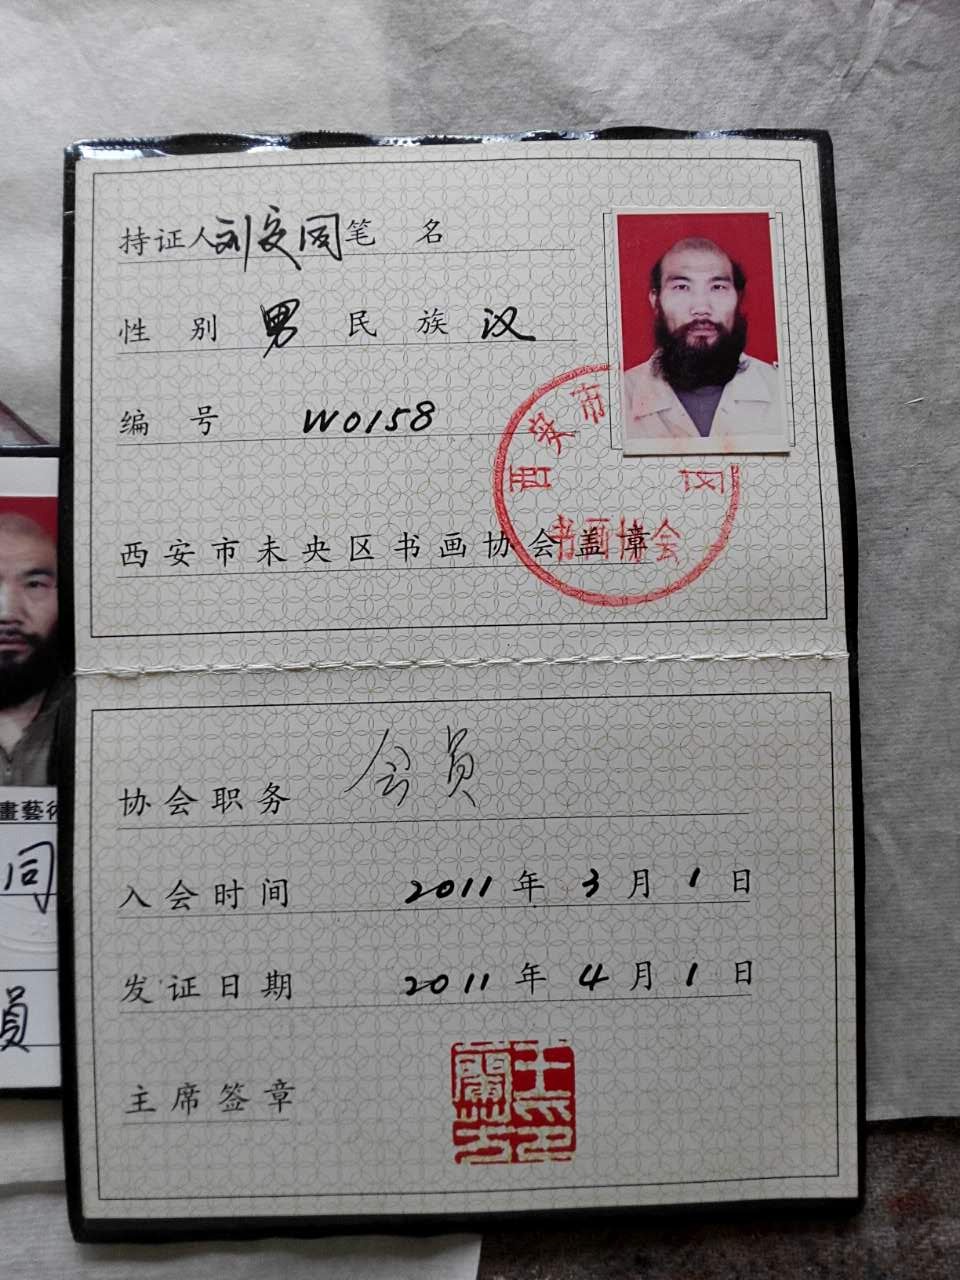 持证人 刘文同 笔 名
性 别 男 民 族 汉
编 号 W0158
西安市 区
书画协会
西安市未央区书画协会盖章
协会职务 会员
入会时间 2011 年 3 月 1 日
发证日期 2011 年 4 月 1 日
主席签章
畫藝術
同
員